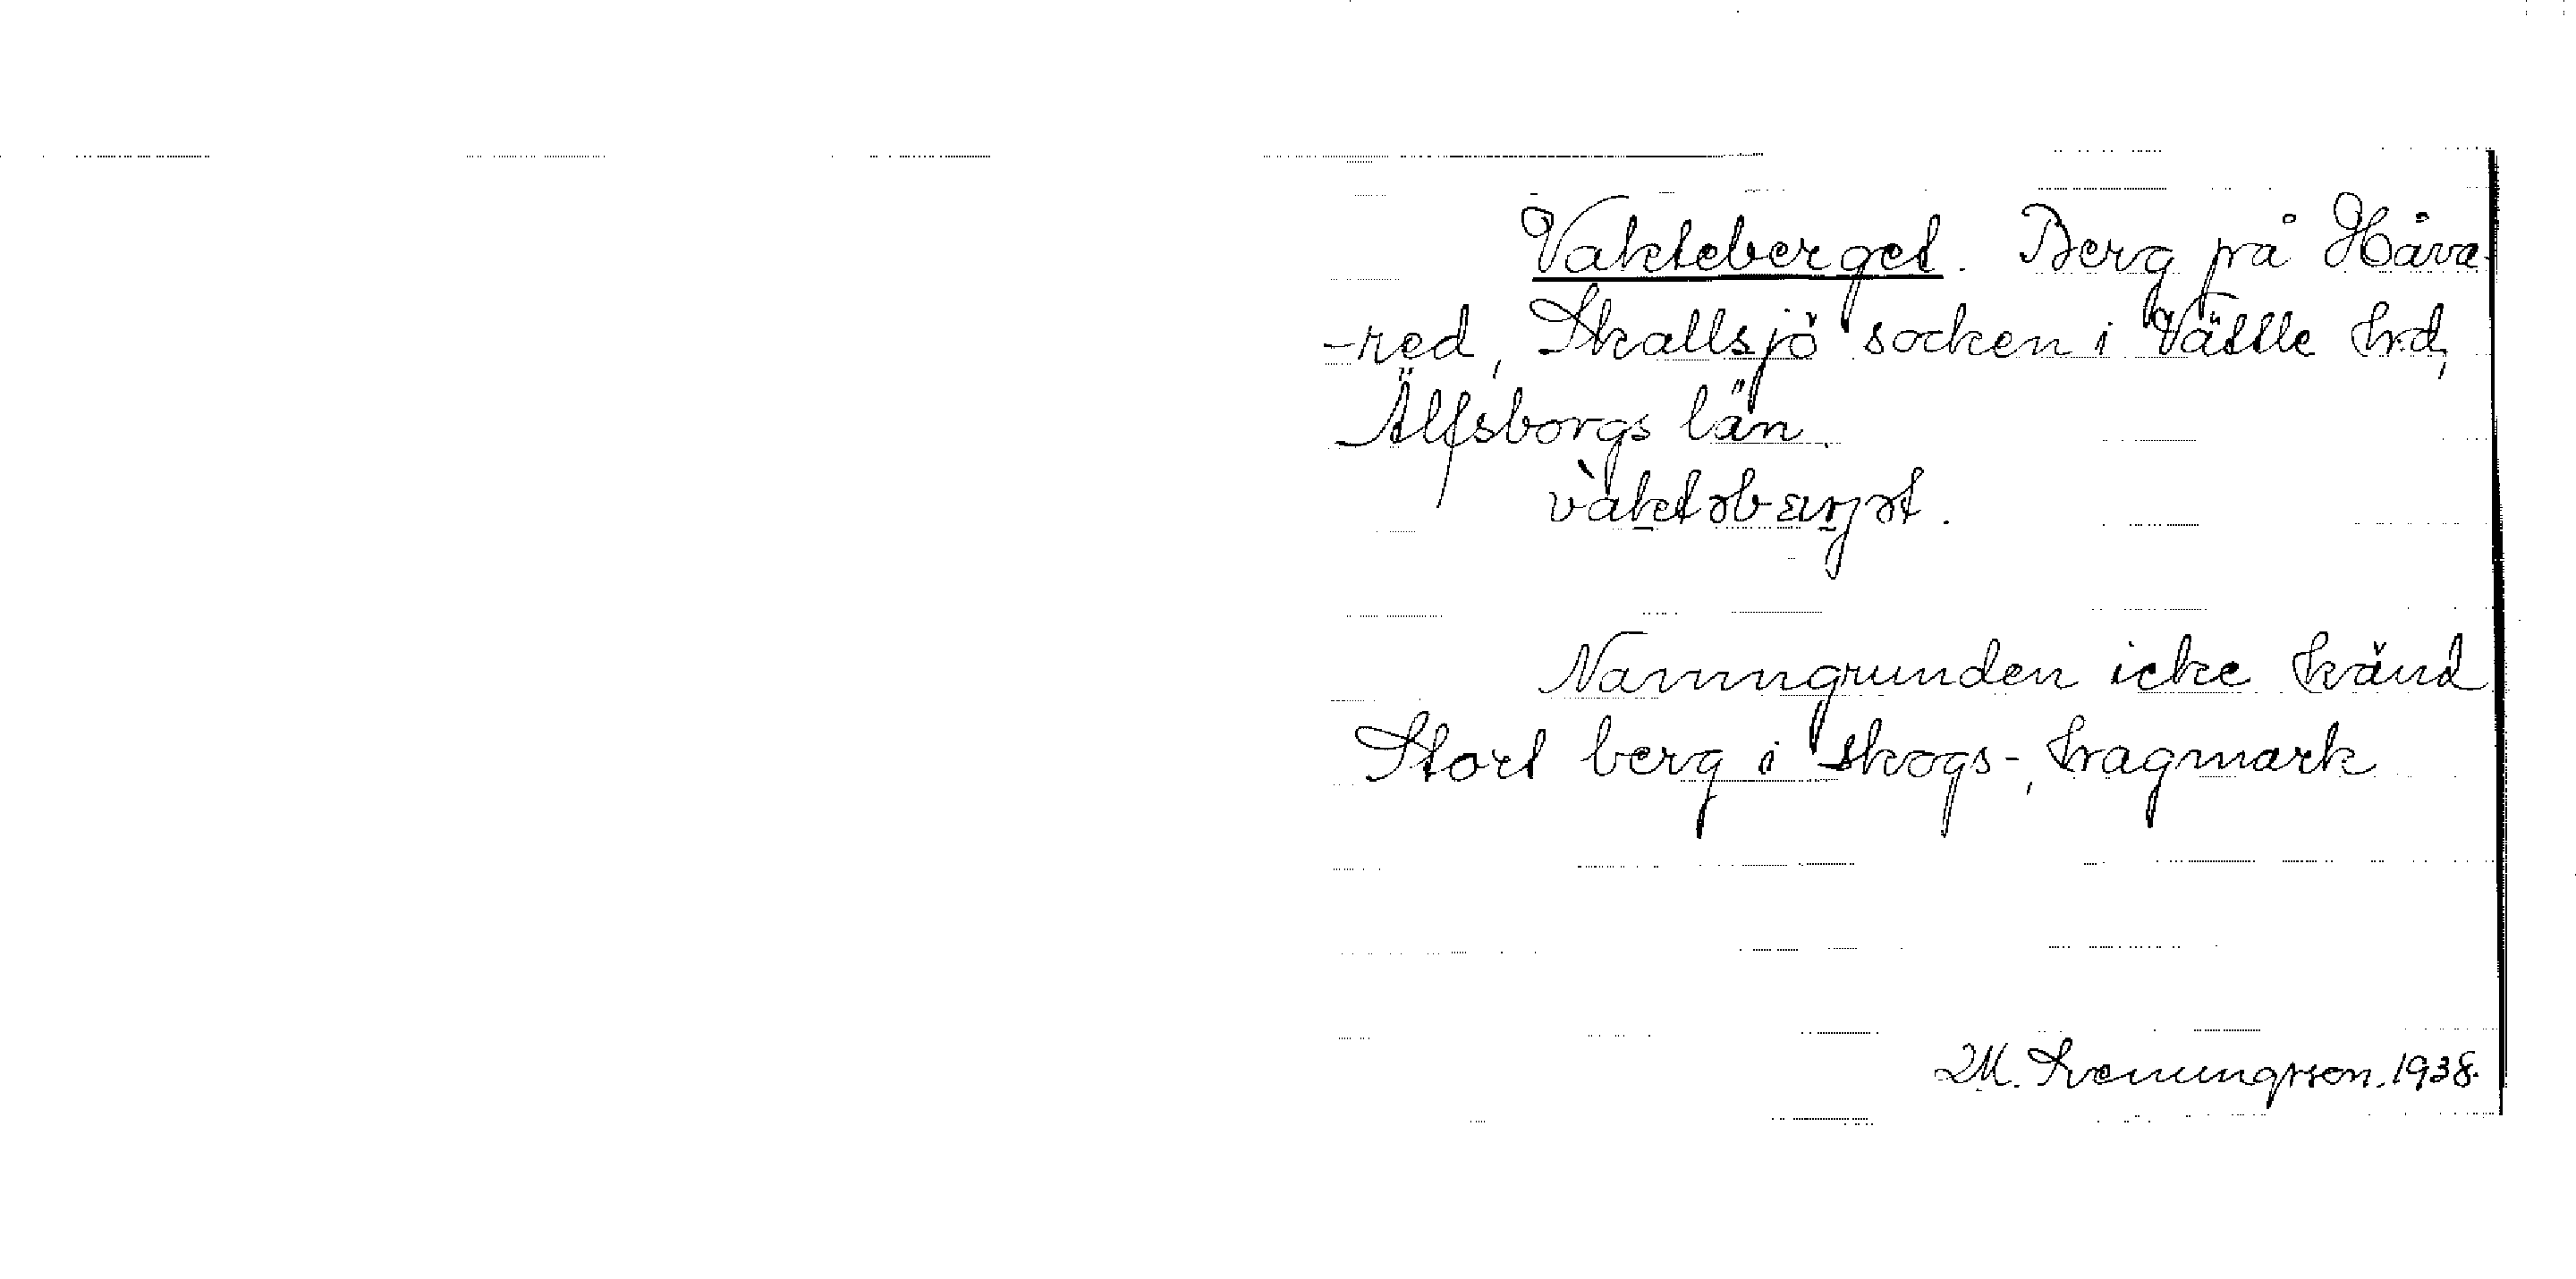 Vakteberget. Berg på Håva-
-red, Skallsjö socken i Vättle hrd,
Älfsborgs län.
vàktəbærjət.
Namngrunden icke känd
Stort berg i skogs-, hagmark
M. Svenungsson. 1938.